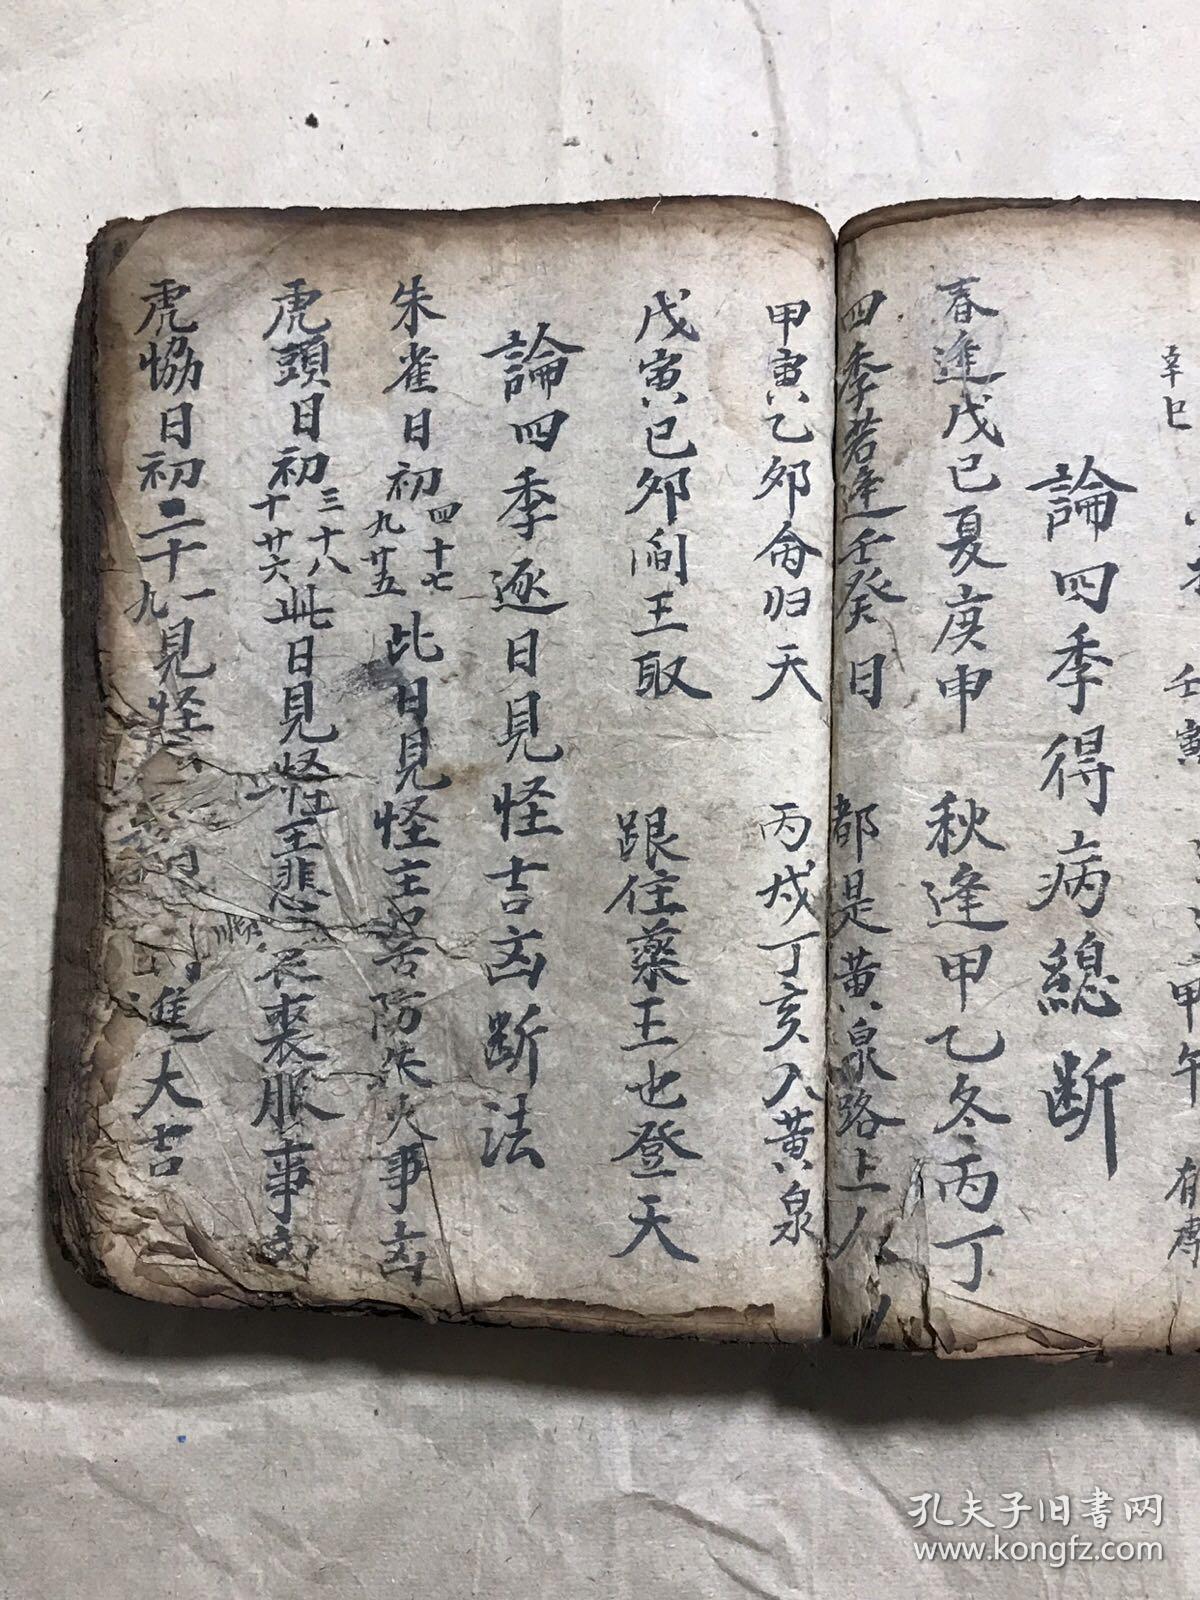 辛巳
壬寅
甲午 有
論四季得病總断
春逢戊己夏庚申 秋逢甲乙冬丙丁
四季若逢壬癸日 都是黄泉路上人
甲寅乙夘侖归天 丙戍丁亥入黄泉
戊寅己夘阎王取 跟住藥王也登天
論四季逐日見怪吉凶断法
朱雀日初四十七九廿五此日見怪主 防失火事凶
虎頭日初三十八十廿六此日見怪主悲 喪服事凶
虎恊日初二十一九見怪 進大吉
孔夫子旧书网
www.kongfz.com